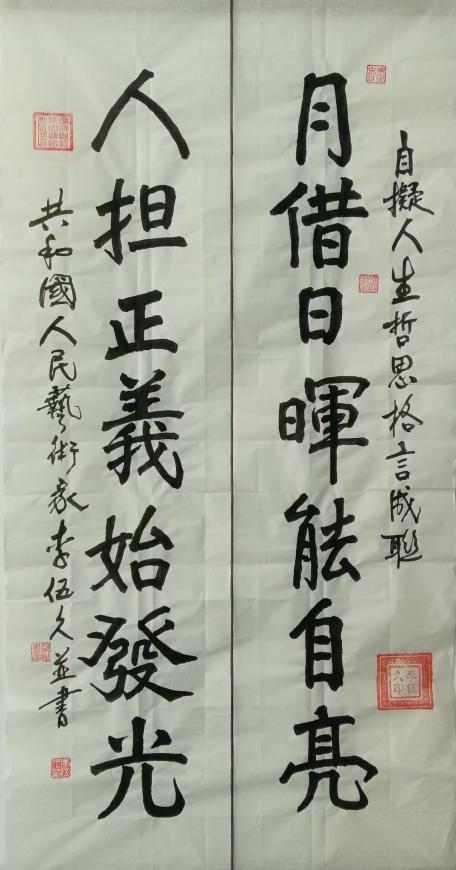 自擬人生哲思格言成聯
月借日暉能自亮
人担正義始發光
共和國人民藝術家李伍久並書
李伍久印